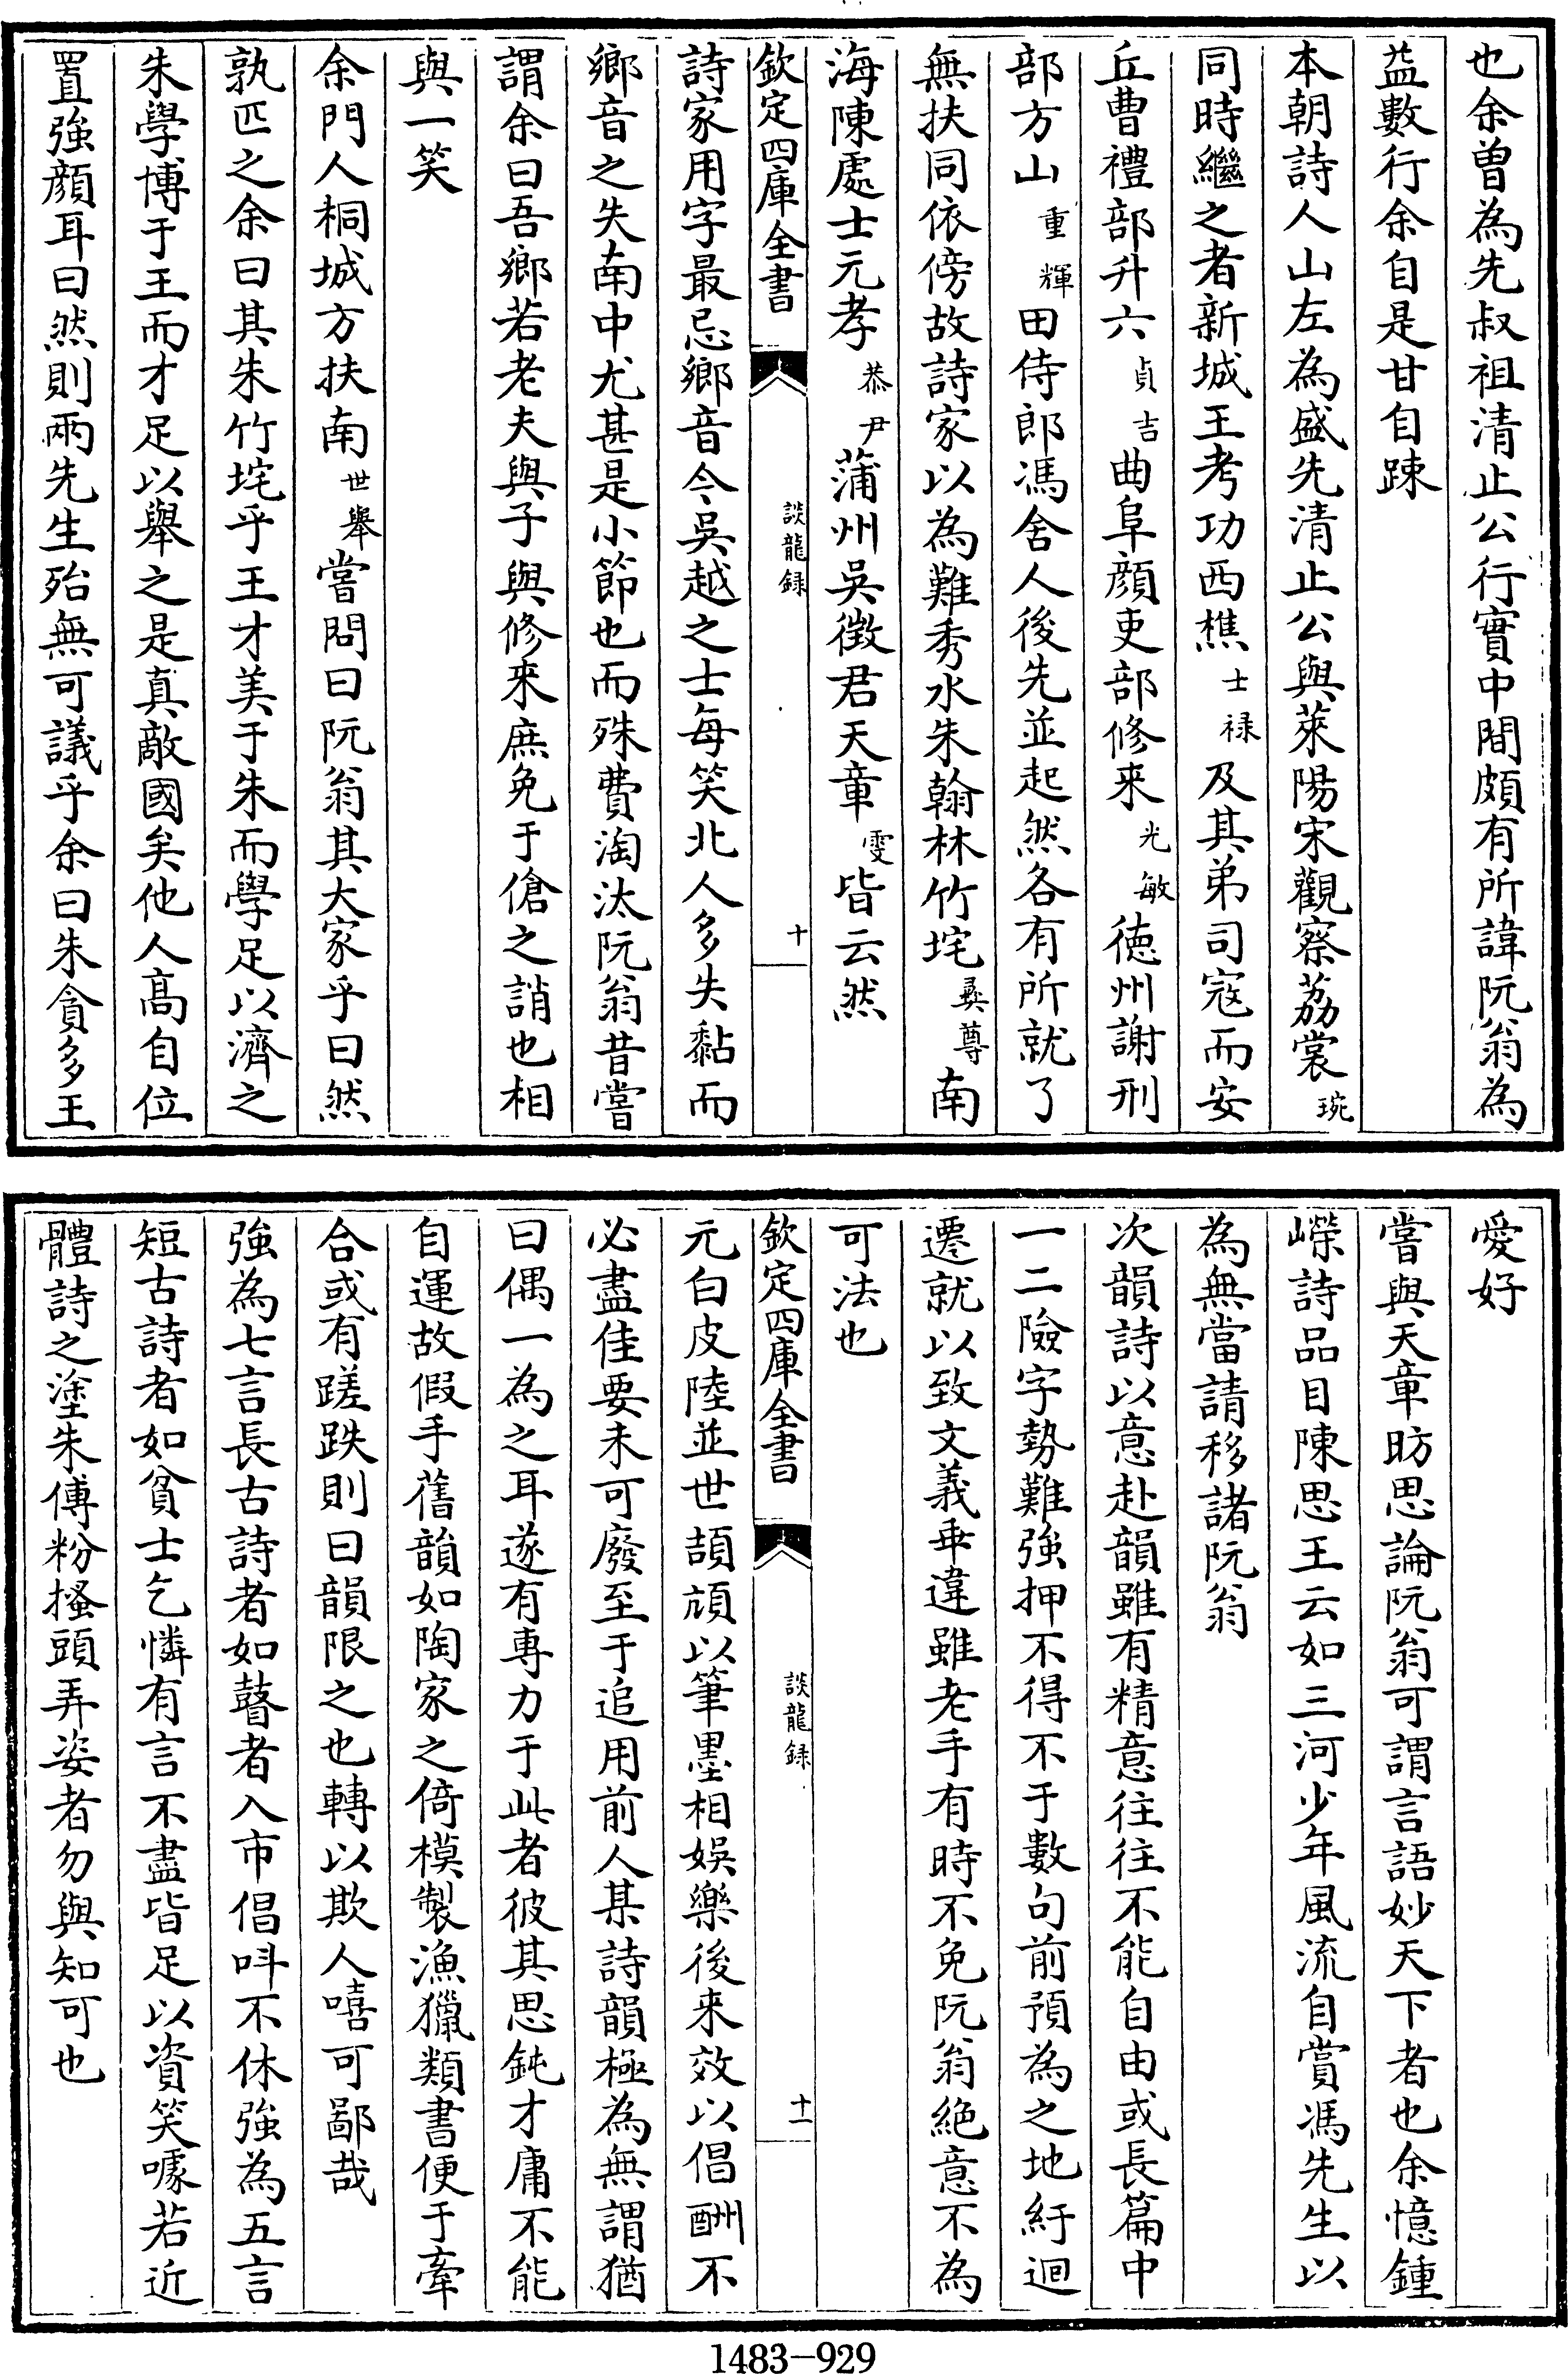 也余曾為先叔祖清止公行實中間頗有所諱阮翁為
益數行余自是甘自踈
本朝詩人山左為盛先清止公與萊陽宋觀察荔裳琬
同時繼之者新城王考功西樵士禄及其弟司寇而安
丘曹禮部升六貞吉曲阜顔吏部修来光敏徳州謝刑
部方山重輝田侍郎馮舍人後先並起然各有所就了
無扶同依傍故詩家以為難秀水朱翰林竹垞彝尊南
海陳處士元孝恭尹蒲州吳徴君天章雯皆云然
欽定四庫全書 談龍録 十
詩家用字最忌鄉音今吳越之士每笑北人多失黏而
鄉音之失南中尤甚是小節也而殊費淘汰阮翁昔嘗
謂余曰吾鄉若老夫與子與修来庶免于傖之誚也相
與一笑
余門人桐城方扶南世舉嘗問曰阮翁其大家乎曰然
孰匹之余曰其朱竹垞乎王才美于朱而學足以濟之
朱學博于王而才足以舉之是真敵國矣他人髙自位
置強顔耳曰然則兩先生殆無可議乎余曰朱貪多王
愛好
嘗與天章昉思論阮翁可謂言語妙天下者也余憶鍾
嶸詩品目陳思王云如三河少年風流自賞馮先生以
為無當請移諸阮翁
次韻詩以意赴韻雖有精意往往不能自由或長篇中
一二險字勢難強押不得不于數句前預為之地紆迴
遷就以致文義乖違雖老手有時不免阮翁絶意不為
可法也
欽定四庫全書 談龍録 十一
元白皮陸並世頡頏以筆墨相娯樂後来效以倡酬不
必盡佳要未可廢至于追用前人某詩韻極為無謂猶
曰偶一為之耳遂有專力于此者彼其思鈍才庸不能
自運故假手舊韻如陶家之倚模製漁獵類書便于牽
合或有蹉跌則曰韻限之也轉以欺人嘻可鄙哉
強為七言長古詩者如瞽者入市倡呌不休強為五言
短古詩者如貧士乞憐有言不盡皆足以資笑噱若近
體詩之塗朱傅粉搔頭弄姿者勿與知可也
1483-929